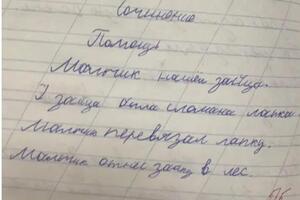 Сочинение
Помощь
Мальчик нашел зайца.
У зайца была сломана лапка.
Мальчик перевязал лапку.
Мальчик отнес зайку в лес.